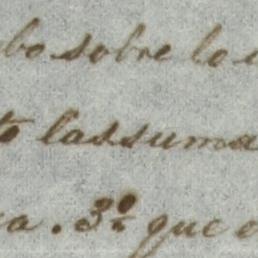 bo sobre lo
to las suma
a. 3º que